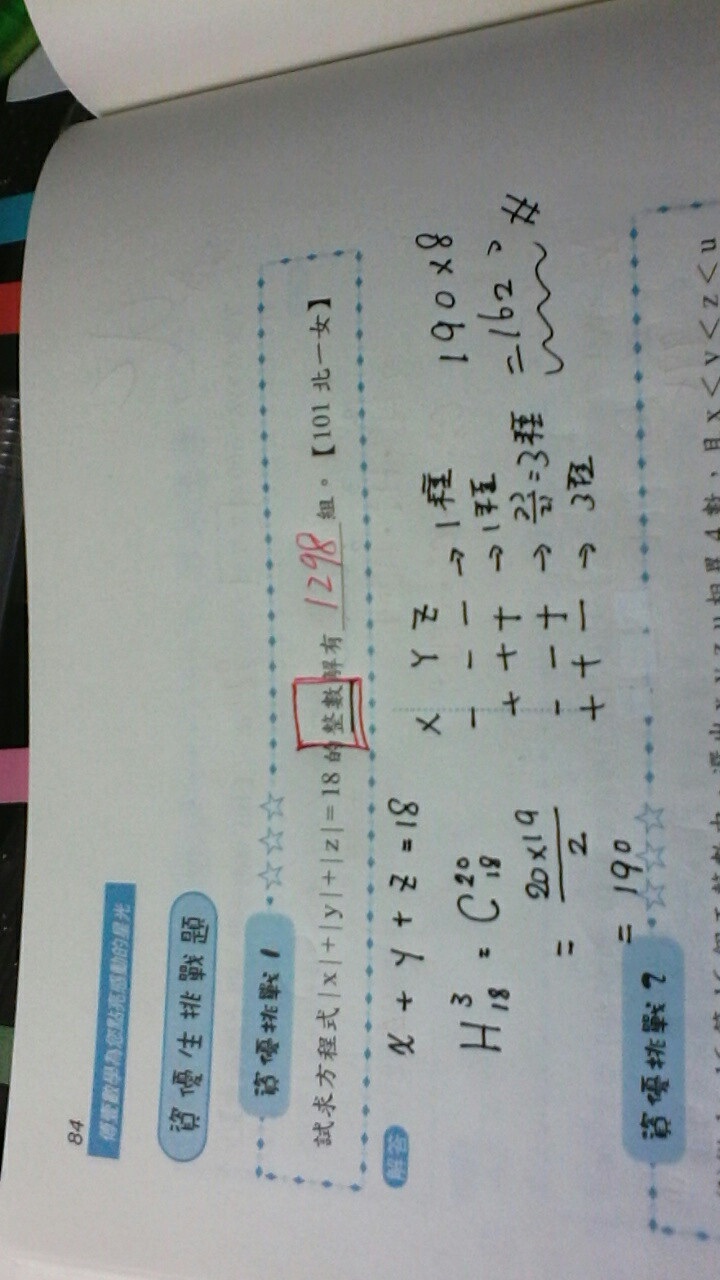 84
傅東數學為您點亮感動的星光
資優生挑戰題
資優挑戰 1 ☆☆☆
試求方程式|x|+|y|+|z|=18的整數解有 1298 組。【101 北一女】
解答
x + y + z = 18
H³₁₈ = C²⁰₁₈
= 20×19/2
= 190
x y z
- - - → 1種
+ + + → 1種
- - + → 3!/2!=3種
+ + - → 3種
190×8
=1620 #
資優挑戰 2 ☆☆☆